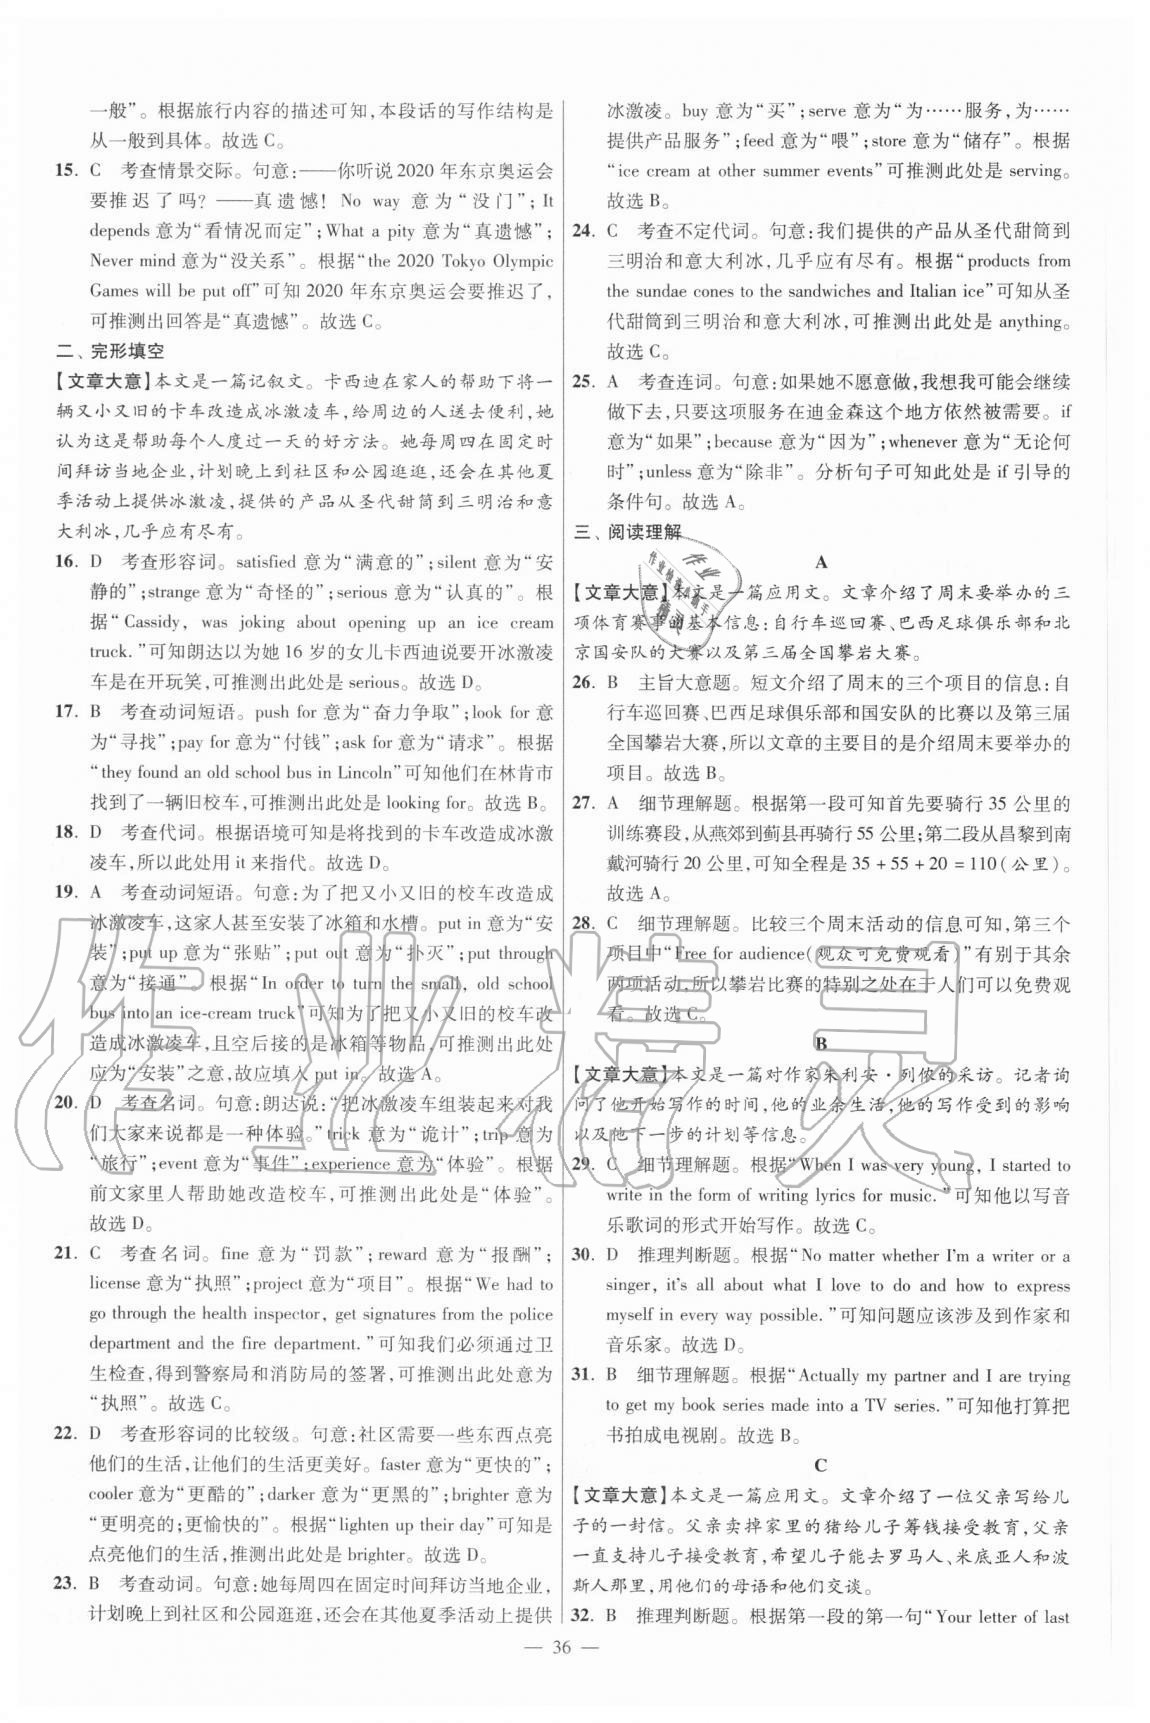 一般”。根据旅行内容的描述可知,本段话的写作结构是
从一般到具体。故选 C。
15. C 考查情景交际。句意:——你听说 2020 年东京奥运会
要推迟了吗? ——真遗憾! No way 意为“没门”;It
depends 意为“看情况而定”;What a pity 意为“真遗憾”;
Never mind 意为“没关系”。根据“the 2020 Tokyo Olympic
Games will be put off”可知 2020 年东京奥运会要推迟了,
可推测出回答是“真遗憾”。故选 C。
二、完形填空
【文章大意】本文是一篇记叙文。卡西迪在家人的帮助下将一
辆又小又旧的卡车改造成冰激凌车,给周边的人送去便利,她
认为这是帮助每个人度过一天的好方法。她每周四在固定时
间拜访当地企业,计划晚上到社区和公园逛逛,还会在其他夏
季活动上提供冰激凌,提供的产品从圣代甜筒到三明治和意
大利冰,几乎应有尽有。
16. D 考查形容词。satisfied 意为“满意的”;silent 意为“安
静的”;strange 意为“奇怪的”;serious 意为“认真的”。根
据“Cassidy, was joking about opening up an ice cream
truck.”可知朗达以为她 16 岁的女儿卡西迪说要开冰激凌
车是在开玩笑,可推测出此处是 serious。故选 D。
17. B 考查动词短语。push for 意为“奋力争取”;look for 意
为“寻找”;pay for 意为“付钱”;ask for 意为“请求”。根据
“they found an old school bus in Lincoln”可知他们在林肯市
找到了一辆旧校车,可推测出此处是 looking for。故选 B。
18. D 考查代词。根据语境可知是将找到的卡车改造成冰激
凌车,所以此处用 it 来指代。故选 D。
19. A 考查动词短语。句意:为了把又小又旧的校车改造成
冰激凌车,这家人甚至安装了冰箱和水槽。put in 意为“安
装”;put up 意为“张贴”;put out 意为“扑灭”;put through
意为“接通”。根据“In order to turn the small, old school
bus into an ice-cream truck”可知为了把又小又旧的校车改
造成冰激凌车,且空后接的是冰箱等物品,可推测出此处
应为“安装”之意,故应填入 put in。故选 A。
20. D 考查名词。句意:朗达说:“把冰激凌车组装起来对我
们大家来说都是一种体验。”trick 意为“诡计”;trip 意为
“旅行”;event 意为“事件”;experience 意为“体验”。根据
前文家里人帮助她改造校车,可推测出此处是“体验”。
故选 D。
21. C 考查名词。fine 意为“罚款”;reward 意为“报酬”;
license 意为“执照”;project 意为“项目”。根据“We had to
go through the health inspector, get signatures from the police
department and the fire department.”可知我们必须通过卫
生检查,得到警察局和消防局的签署,可推测出此处意为
“执照”。故选 C。
22. D 考查形容词的比较级。句意:社区需要一些东西点亮
他们的生活,让他们的生活更美好。faster 意为“更快的”;
cooler 意为“更酷的”;darker 意为“更黑的”;brighter 意为
“更明亮的;更愉快的”。根据“lighten up their day”可知是
点亮他们的生活,推测出此处是 brighter。故选 D。
23. B 考查动词。句意:她每周四在固定时间拜访当地企业,
计划晚上到社区和公园逛逛,还会在其他夏季活动上提供
冰激凌。buy 意为“买”;serve 意为“为……服务,为……
提供产品服务”;feed 意为“喂”;store 意为“储存”。根据
“ice cream at other summer events”可推测此处是 serving。
故选 B。
24. C 考查不定代词。句意:我们提供的产品从圣代甜筒到
三明治和意大利冰,几乎应有尽有。根据“products from
the sundae cones to the sandwiches and Italian ice”可知从圣
代甜筒到三明治和意大利冰,可推测出此处是 anything。
故选 C。
25. A 考查连词。句意:如果她不愿意做,我想我可能会继续
做下去,只要这项服务在迪金森这个地方依然被需要。if
意为“如果”;because 意为“因为”;whenever 意为“无论何
时”;unless 意为“除非”。分析句子可知此处是 if 引导的
条件句。故选 A。
三、阅读理解
A
【文章大意】本文是一篇应用文。文章介绍了周末要举办的三
项体育赛事的基本信息:自行车巡回赛、巴西足球俱乐部和北
京国安队的大赛以及第三届全国攀岩大赛。
26. B 主旨大意题。短文介绍了周末的三个项目的信息:自
行车巡回赛、巴西足球俱乐部和国安队的比赛以及第三届
全国攀岩大赛,所以文章的主要目的是介绍周末要举办的
项目。故选 B。
27. A 细节理解题。根据第一段可知首先要骑行 35 公里的
训练赛段,从燕郊到蓟县再骑行 55 公里;第二段从昌黎到南
戴河骑行 20 公里,可知全程是 35 + 55 + 20 = 110(公里)。
故选 A。
28. C 细节理解题。比较三个周末活动的信息可知,第三个
项目中“Free for audience(观众可免费观看)”有别于其余
两项活动,所以攀岩比赛的特别之处在于人们可以免费观
看。故选 C。
B
【文章大意】本文是一篇对作家朱利安·列侬的采访。记者询
问了他开始写作的时间,他的业余生活,他的写作受到的影响
以及他下一步的计划等信息。
29. C 细节理解题。根据“When I was very young, I started to
write in the form of writing lyrics for music.”可知他以写音
乐歌词的形式开始写作。故选 C。
30. D 推理判断题。根据“No matter whether I'm a writer or a
singer, it's all about what I love to do and how to express
myself in every way possible.”可知问题应该涉及到作家和
音乐家。故选 D。
31. B 细节理解题。根据“Actually my partner and I are trying
to get my book series made into a TV series.”可知他打算把
书拍成电视剧。故选 B。
C
【文章大意】本文是一篇应用文。文章介绍了一位父亲写给儿
子的一封信。父亲卖掉家里的猪给儿子筹钱接受教育,父亲
一直支持儿子接受教育,希望儿子能去罗马人、米底亚人和波
斯人那里,用他们的母语和他们交谈。
32. B 推理判断题。根据第一段的第一句“Your letter of last
— 36 —
作业精灵